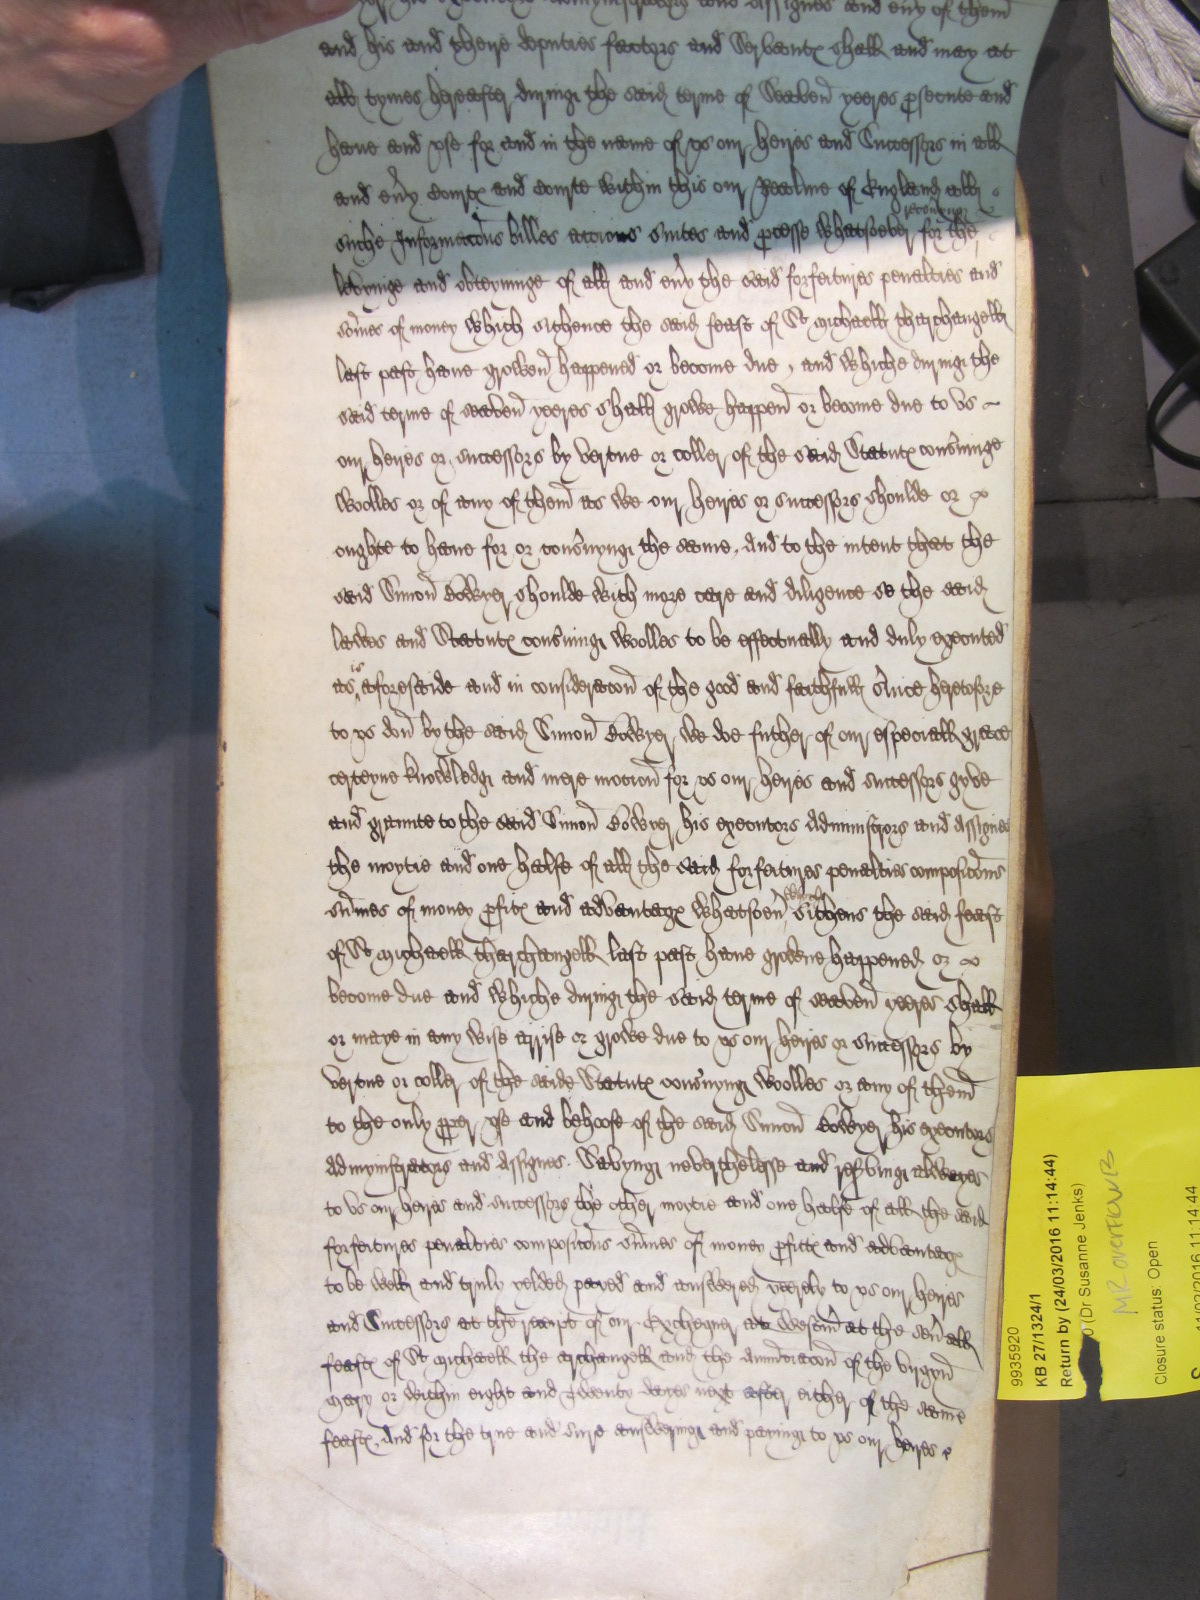 his executors Administrators and Assignes and euy of them
and his and theire deputies factors and Servauntes shall and may at
all tymes hereafter during the said terme of Seaven yeeres psecute and
haue and vse for and in the name of vs our heires and Successors in all
and euy Courte and Courte within this our Realme of England all
suche Informacons billes accions suites and pcesse whatsoever for the recoueringe
levyinge and obteyninge of all and euy the said forfeitures penalties and
somes of money which sithence the said feast of St Michaell tharchangell
last past haue growen happened or become due, and whiche during the
said terme of seaven yeeres shall growe happen or become due to vs
our heires or successors by vertue or coller of the said Statute concninge
Woolles or of any of them as we our heires or successors shoulde or
oughte to haue for or concnyng the same. And to the intent that the
said Simon Bowyer shoulde with more care and diligence se the said
lawes and Statute concning woolles to be effectually and duly executed
as is aforesaide and in consideracon of the good and faithfull svice heretofore
to vs don by the said Simon Bowyer, we doe futher of our especiall grace
certeyne knowledg and mere mocion for vs our heires and successors gyve
and graunte to the said Simon Bowyer his executors Administrors and Assignes
the moytie and one halfe of all the said forfeitures penalties composicons
sumes of money pfite and advantage whatsoeu whiche sithens the said feast
of St Michaell tharchangell last past haue growene happened or
become due and whiche during the said terme of seaven yeeres shall
or maye in any wise arrise or growe due to vs our heires or successors by
vertue or coller of the saide Statute concnyng woolles or any of them
to the only pper vse and behoofe of the said Simon Bowyer his executors
Admynistrators and Assignes. Savyng neverthelesse and reserving alwayes
to vs our heires and successors the other moytie and one halfe of all the said
forfeitures penalties composicons sumes of money pfite and advantage
to be well and truly yelded payed and answered yeerely to vs our heires
and Successors at the receipt of our Exchequer at Westm at the seuall
feaste of St Michaell the archangell and the Annunciacon of the virgyn
Mary or within eight and twenty dayes next after either of the same
feaste. And for the true and sure answering and paying to vs our heires
9935920
KB 27/1324/1
Return by (24/03/2016 11:14:44)
(Dr Susanne Jenks)
MR overtown B
Closure status: Open
11/02/2016 11:14:44